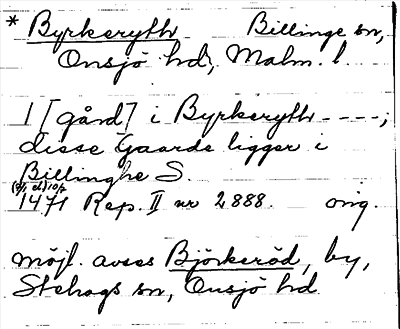 * Byrkeryth Billinge sn,
Onsjö hd, Malm. l.
1 [gård] i Byrkeryth ----;
disse Gaarde ligger i
Billinghe S.
1471 Rep. II nr 2888. orig.
möjl. avses Björkeröd, by,
Stehags sn, Onsjö hd.